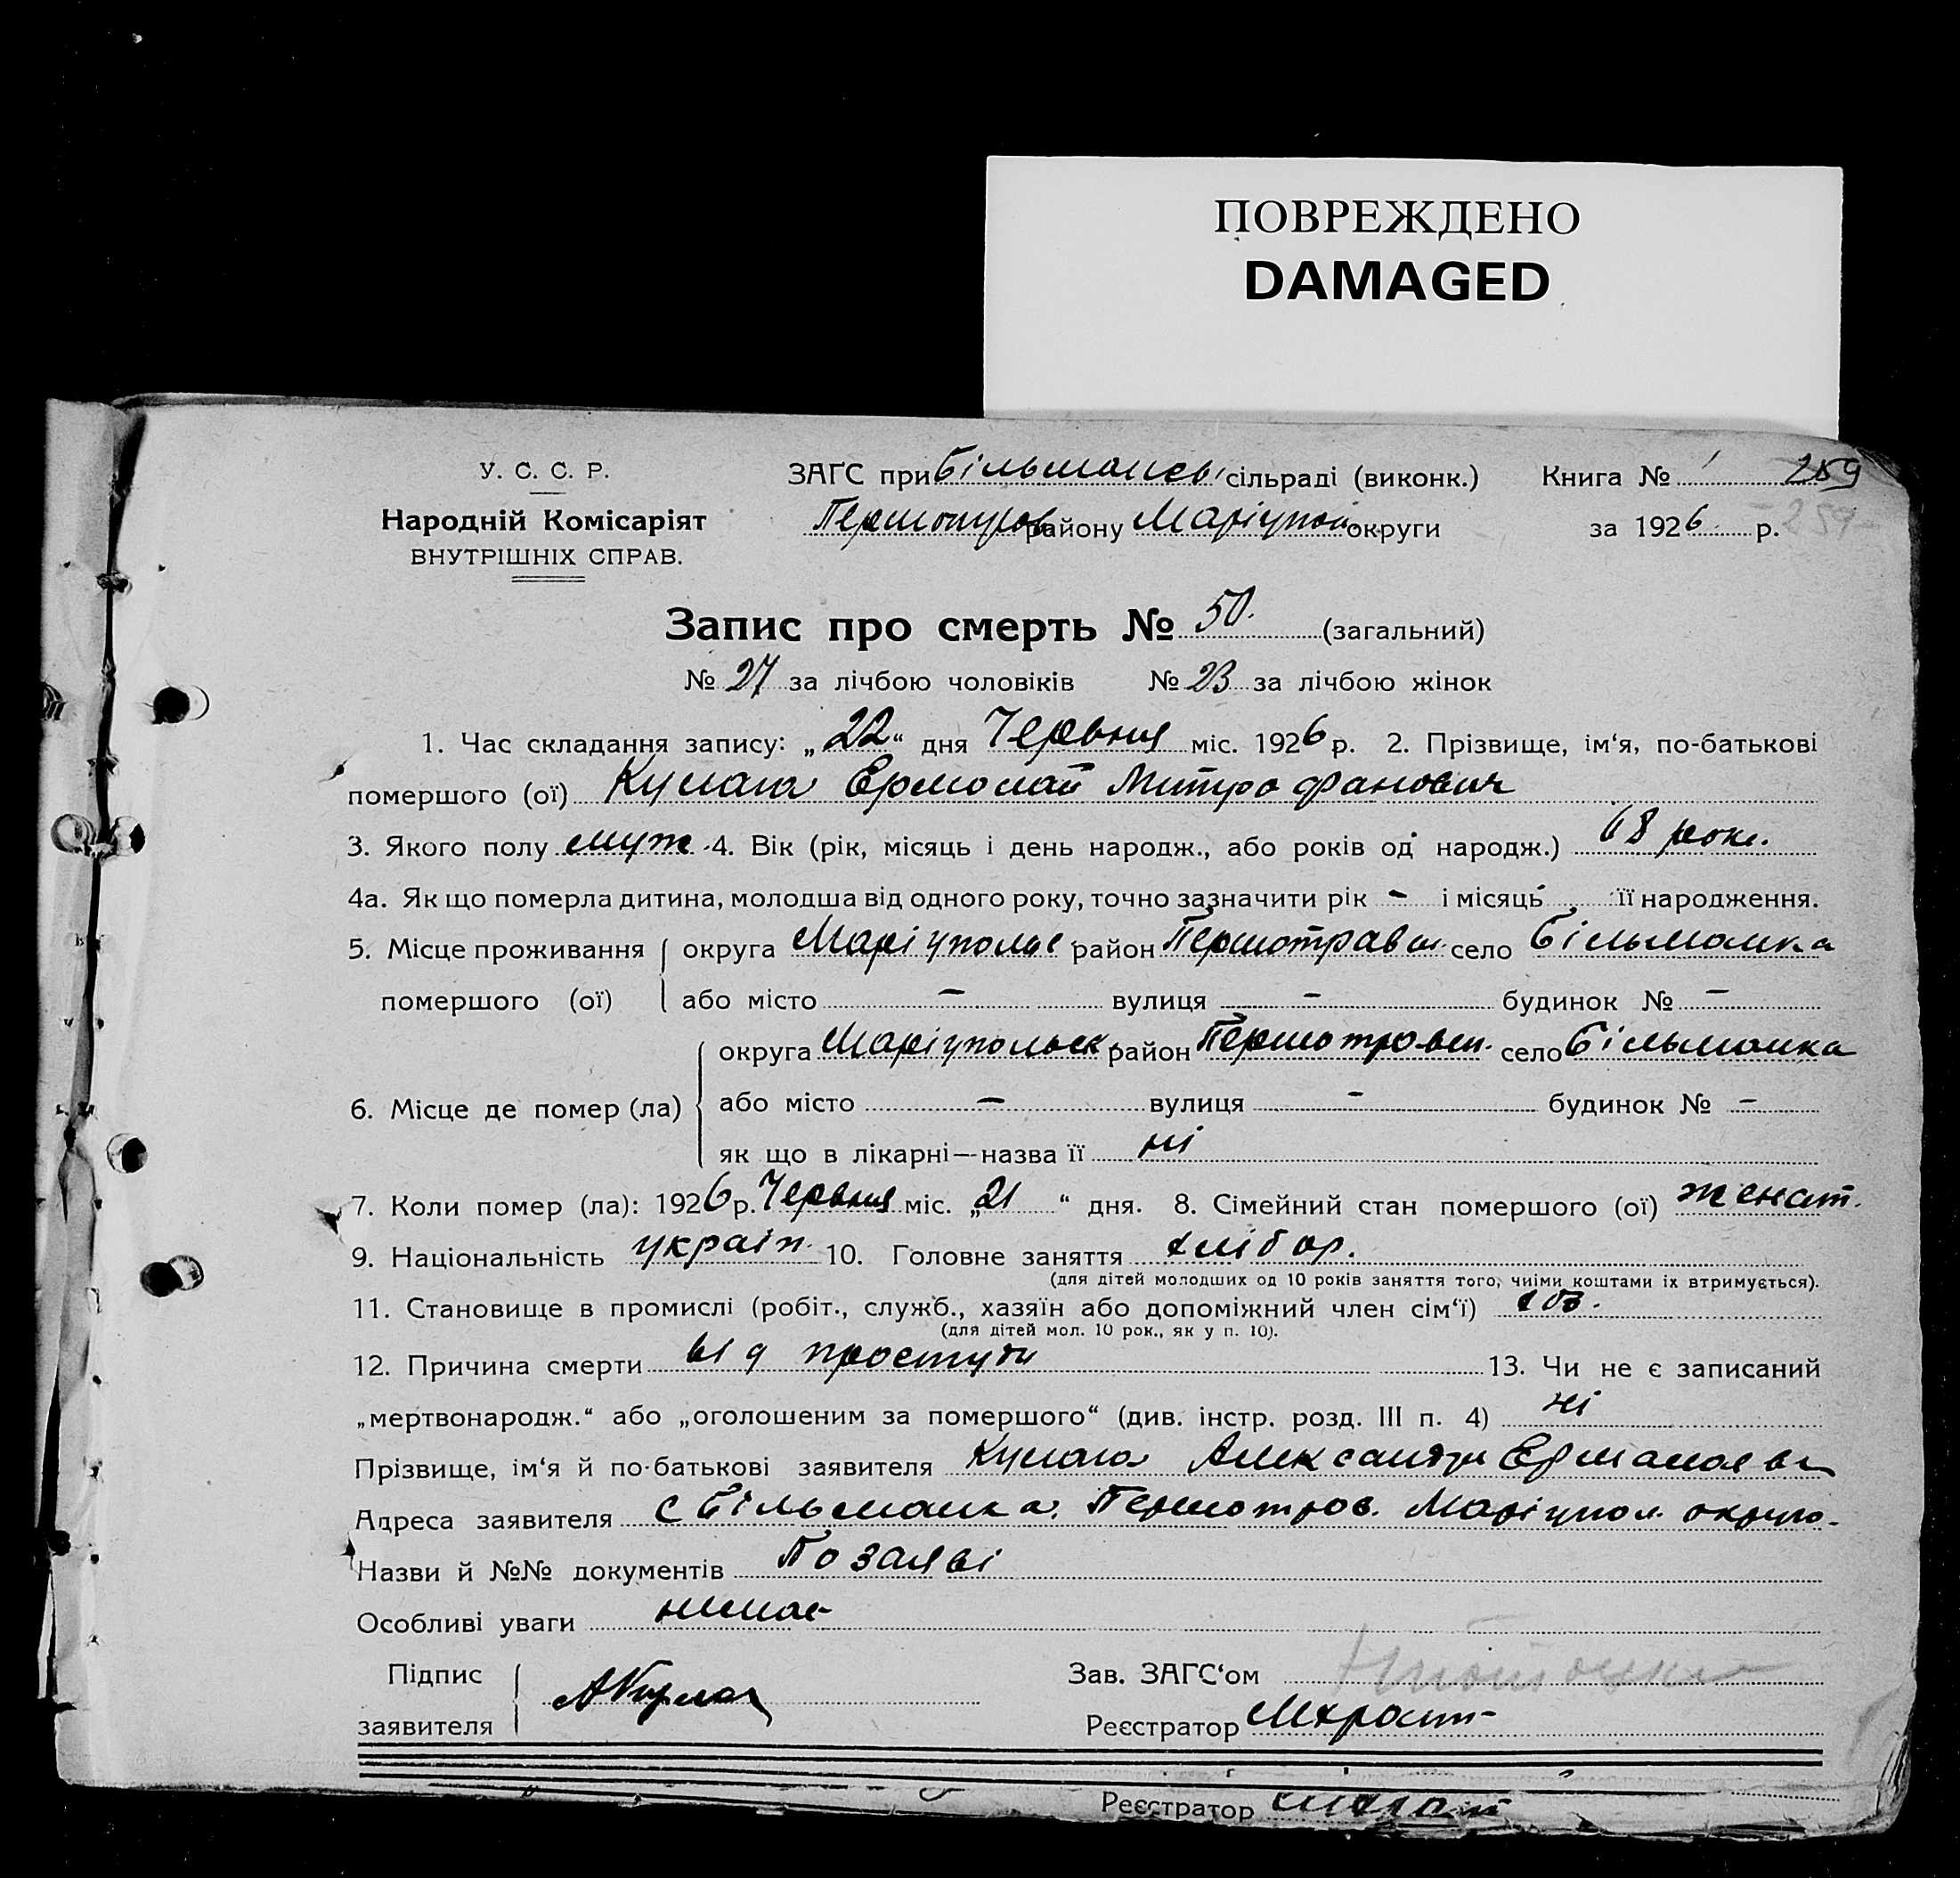 ПОВРЕЖДЕНО
DAMAGED
У. С. С. Р. ЗАГС при Більманськ сільраді (виконк.) Книга № 1 259
Народній Комісаріят району Маріупол. округи за 1926 р. 259
ВНУТРІШНІХ СПРАВ.
Запис про смерть № 50. (загальний)
№ 27 за лічбою чоловіків № 23 за лічбою жінок
1. Час складання запису: „22“ дня Червня міс. 1926 р. 2. Прізвище, ім‘я, по-батькові
помершого (ої) Ермолай Митрофанович
3. Якого полу муж. 4. Вік (рік, місяць і день народж., або років од народж.) 68 рок.
4а. Як що померла дитина, молодша від одного року, точно зазначити рік – і місяць – її народження.
5. Місце проживання округа Маріупольс район Першотравн. село Більманка
помершого (ої) або місто – вулиця – будинок № –
округа Маріупольськ район Першотравн. село Більманка
6. Місце де помер (ла) або місто – вулиця – будинок № –
як що в лікарні—назва її ні
7. Коли помер (ла): 1926 р. Червня міс. „21“ дня. 8. Сімейний стан помершого (ої) женат.
9. Національність україн. 10. Головне заняття хлібор.
(для дітей молодших од 10 років заняття того, чиіми коштами іх втримується).
11. Становище в промислі (робіт., служб., хазяїн або допоміжний член сім‘ї) хоз.
(для дітей мол. 10 рок., як у п. 10).
12. Причина смерти від простуди 13. Чи не є записаний
„мертвонародж.“ або „оголошеним за помершого“ (див. інстр. розд. III п. 4) ні
Прізвище, ім‘я й по-батькові заявителя Александр
Адреса заявителя с Більманка. Першотров. Маріупол. округа.
Назви й №№ документів По заяві
Особливі уваги немає
Підпис Зав. ЗАГС‘ом
заявителя Реєстратор
Реєстратор